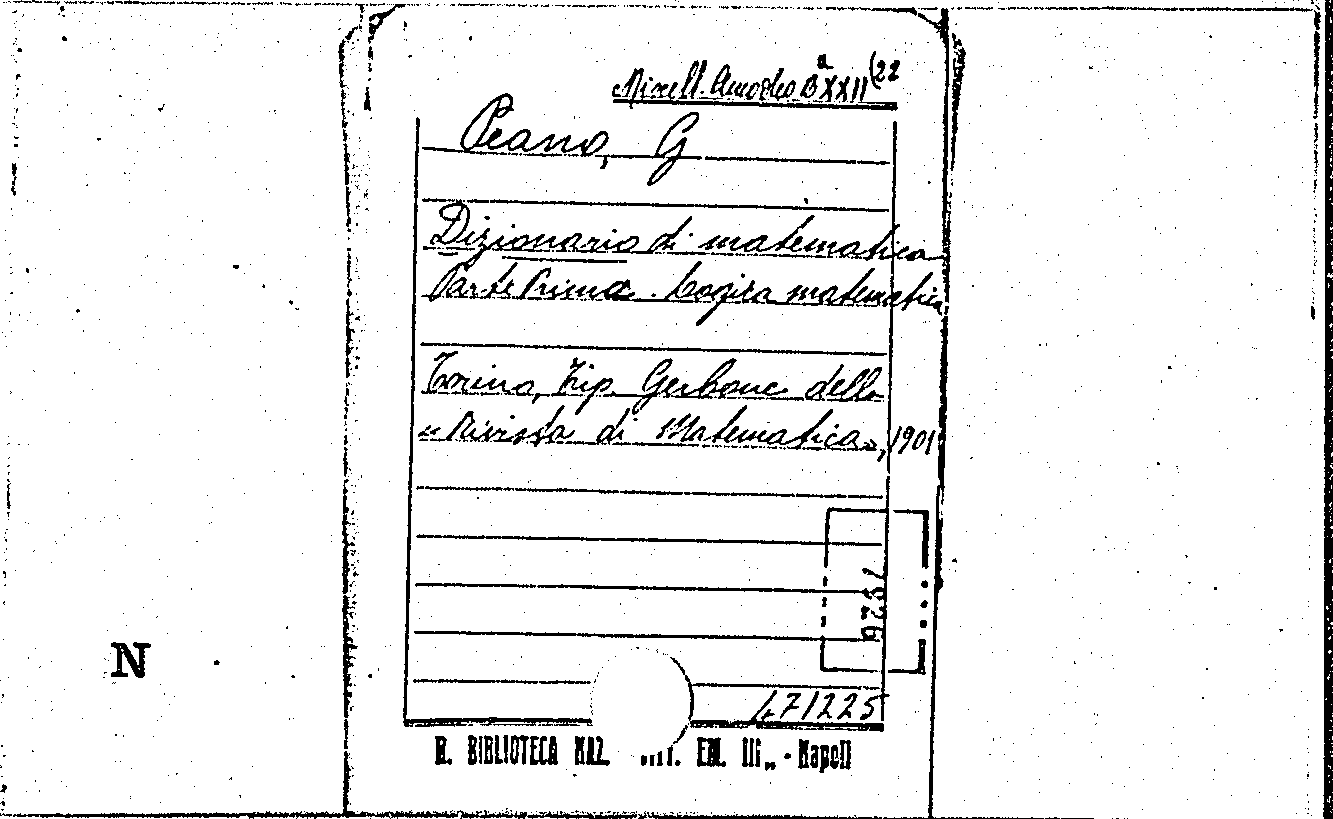 Miscell. Amodeo Bª XXII (22
Peano, G
Dizionario di matematica
Parte Prima. Logica matematica
Torino, Tip. Gerbone della
"Rivista di Matematica", 1901
1926
N
471225
R. BIBLIOTECA NAZ. VITT. EM. III„ - Napoli